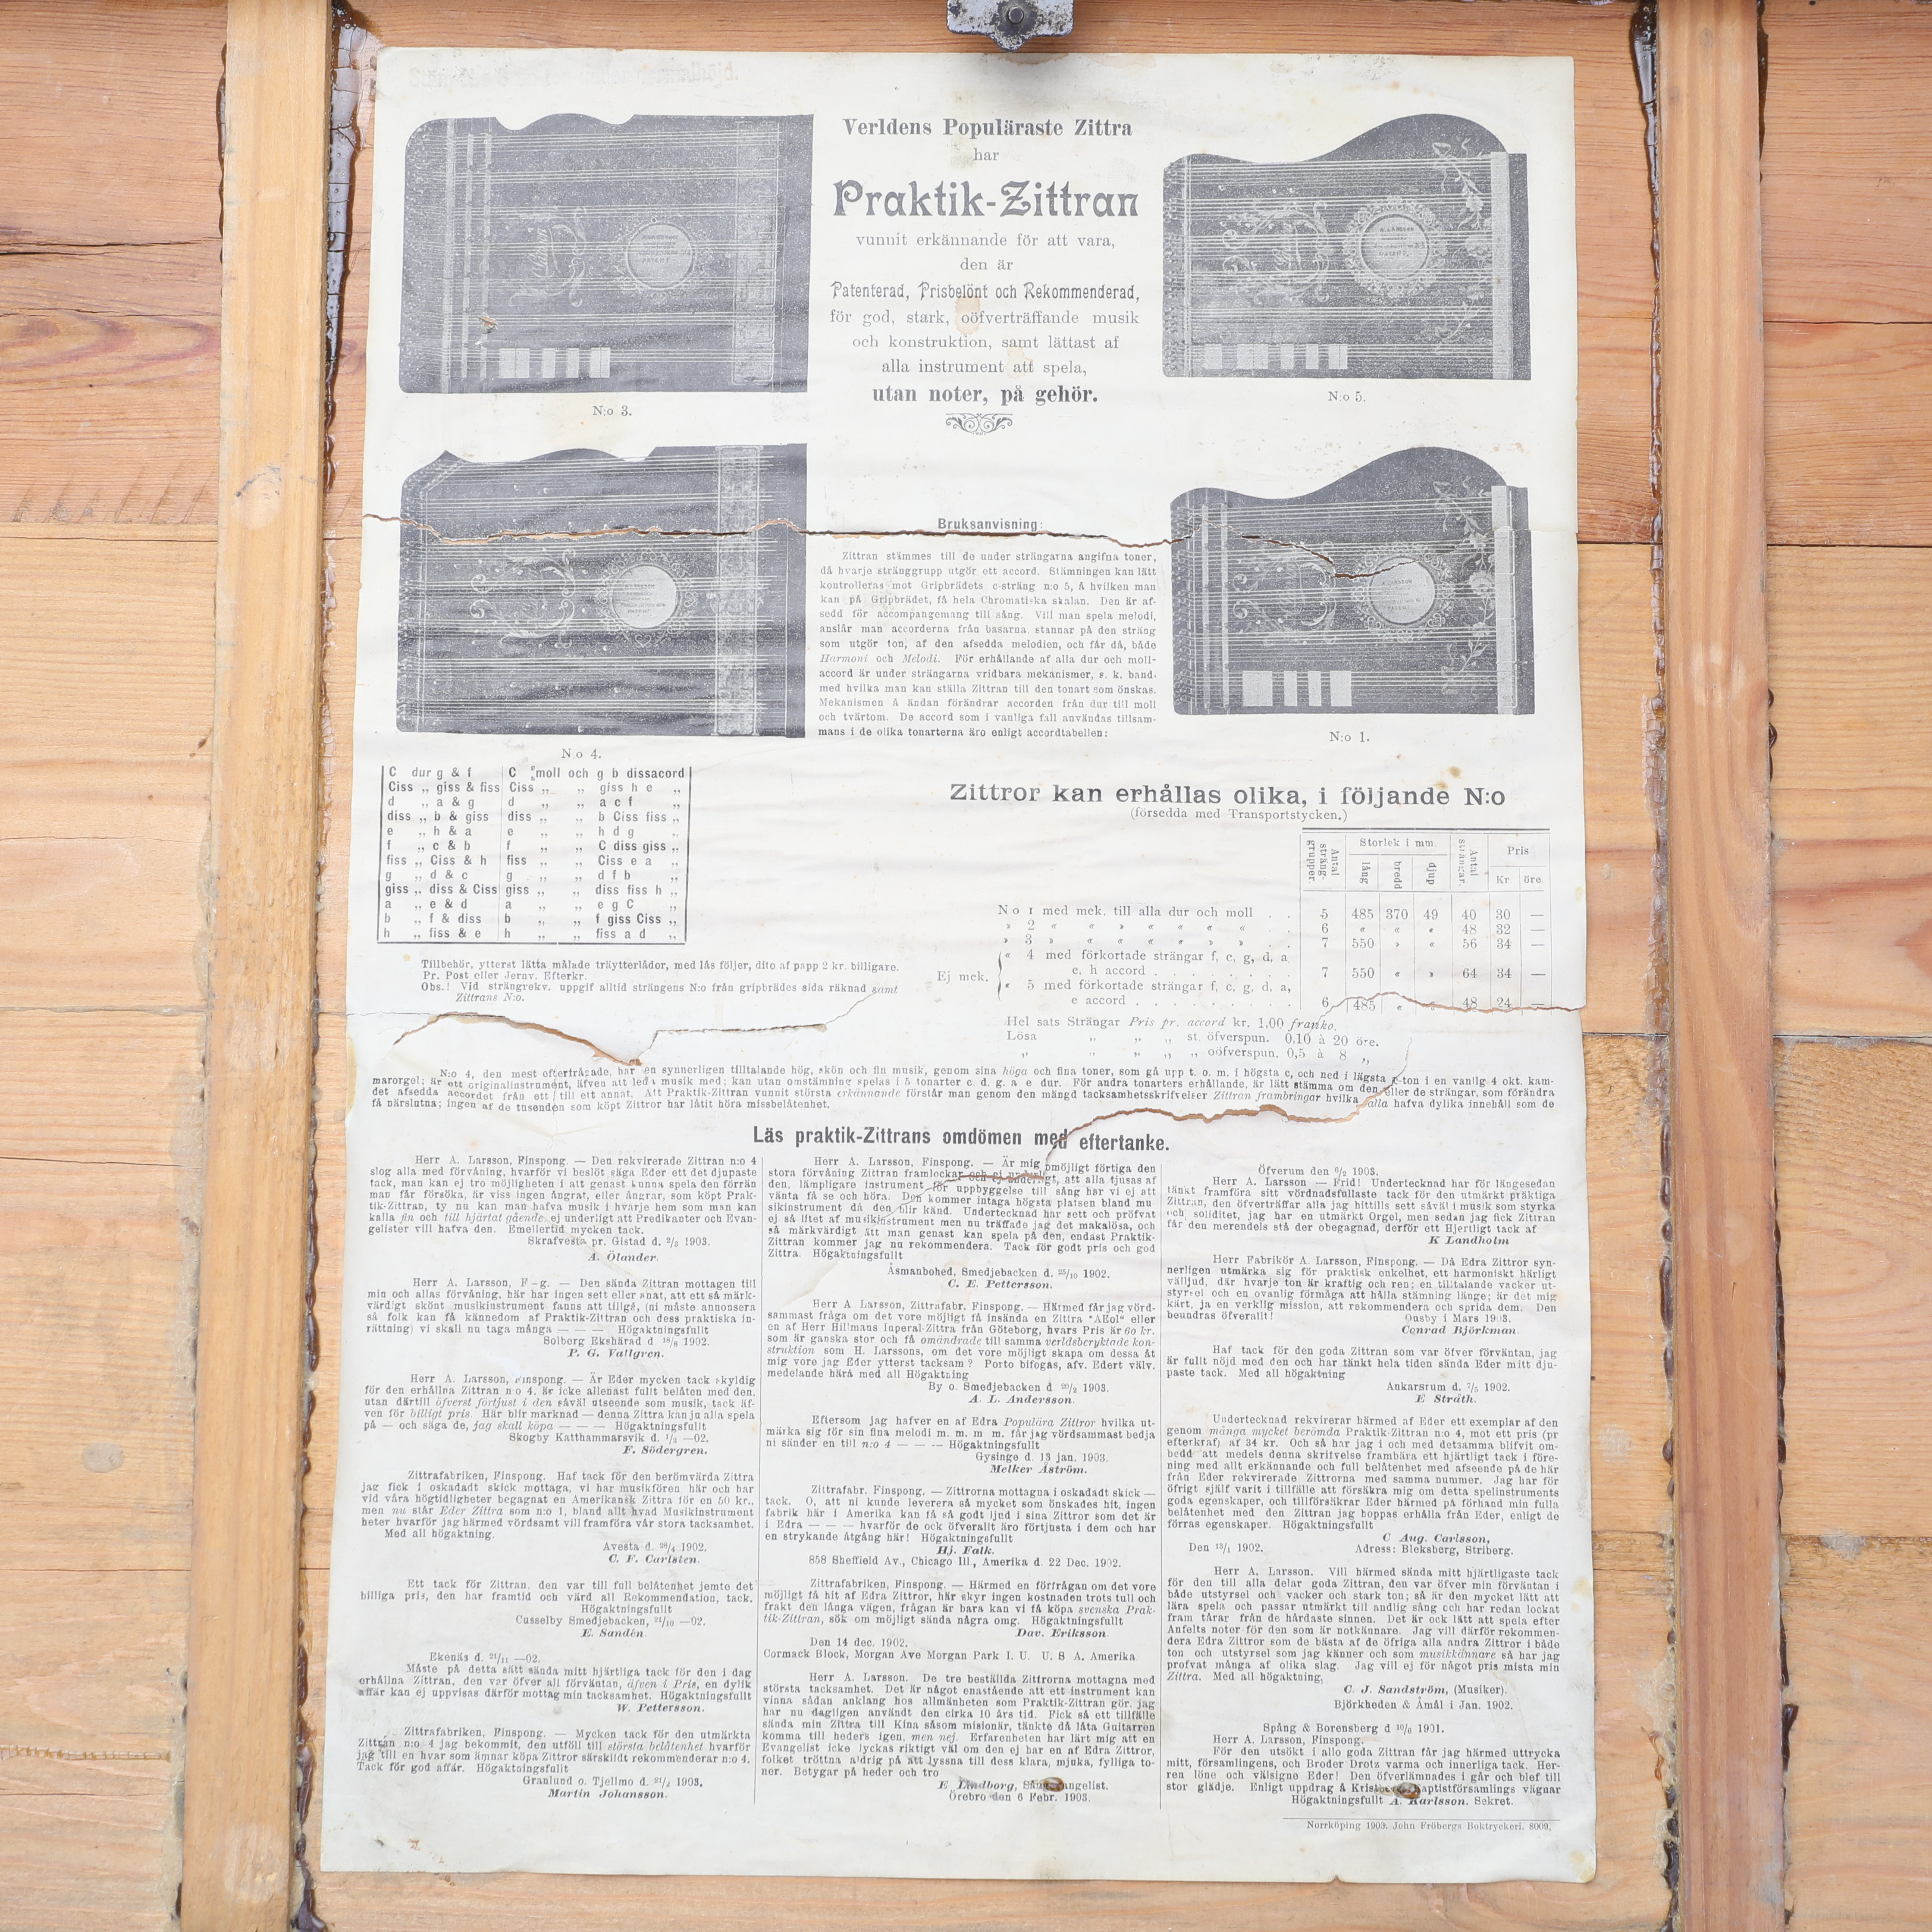 Verldens Populäraste Zittra
har
Praktik-Zittran
vunnit erkännande för att vara,
den är
Patenterad, Prisbelönt och Rekommenderad,
för god, stark, oöfverträffande musik
och konstruktion, samt lättast af
alla instrument att spela,
utan noter, på gehör.
N:o 3.
N:o 5.
N:o 4.
N:o 1.
Bruksanvisning:
Zittran stämmes till de under strängarna angifna toner,
då hvarje stränggrupp utgör ett accord. Stämningen kan lätt
kontrolleras mot Gripbrädets c-sträng n:o 5, å hvilken man
kan på Gripbrädet, få hela Chromatiska skalan. Den är af-
sedd för accompangemang till sång. Vill man spela melodi,
anslår man accorderna från basarna, stannar på den sträng
som utgör ton, af den afsedda melodien, och får då, både
Harmoni och Melodi. För erhållande af alla dur och moll-
accord är under strängarna vridbara mekanismer, s. k. band.
med hvilka man kan ställa Zittran till den tonart som önskas.
Mekanismen å ändan förändrar accorden från dur till moll
och tvärtom. De accord som i vanliga fall användas tillsam-
mans i de olika tonarterna äro enligt accordtabellen:
C dur g & f C moll och g b dissacord
Ciss „ giss & fiss Ciss „ „ giss h e „
d „ a & g d „ „ a c f „
diss „ b & giss diss „ „ b Ciss fiss „
e „ h & a e „ „ h d g „
f „ c & b f „ „ C diss giss „
fiss „ Ciss & h fiss „ „ Ciss e a „
g „ d & c g „ „ d f b „
giss „ diss & Ciss giss „ „ diss fiss h „
a „ e & d a „ „ e g C „
b „ f & diss b „ „ f giss Ciss „
h „ fiss & e h „ „ fiss a d „
Tillbehör, ytterst lätta målade träytterlådor, med lås följer, dito af papp 2 kr. billigare.
Pr. Post eller Jernv. Efterkr.
Obs.! Vid strängrekv. uppgif alltid strängens N:o från gripbrädes sida räknad samt
Zittrans N:o.
Zittror kan erhållas olika, i följande N:o
(försedda med Transportstycken.)
Antal sträng-grupper. Storlek i mm. Antal strängar. Pris
lång bredd djup Kr. öre.
N o 1 med mek. till alla dur och moll . . 5 485 370 49 40 30 —
» 2 « « » « « « « . . 6 « « « 48 32 —
» 3 » « « « « » » . . 7 550 » « 56 34 —
Ej mek. « 4 med förkortade strängar f, c, g, d, a,
e, h accord . . . . . . . . 7 550 « » 64 34 —
« 5 med förkortade strängar f, c, g, d, a,
e accord . . . . . . . . 6 485 « « 48 24 —
Hel sats Strängar Pris pr. accord kr. 1,00 franko.
Lösa „ „ „ st. öfverspun. 0,10 à 20 öre.
„ „ „ „ „ oöfverspun. 0,5 à 8 „
N:o 4, den mest efterfrågade, har en synnerligen tilltalande hög, skön och fin musik, genom sina höga och fina toner, som gå upp t. o. m. i högsta c, och ned i lägsta c-ton i en vanlig 4 okt. kam-
marorgel; är ett originalinstrument, äfven att leda musik med; kan utan omstämning spelas i 5 tonarter c. d. g. a e dur. För andra tonarters erhållande, är lätt stämma om den eller de strängar, som förändra
det afsedda accordet från ett till ett annat. Att Praktik-Zittran vunnit största erkännande förstår man genom den mängd tacksamhetsskrifvelser Zittran frambringar hvilka alla hafva dylika innehåll som de
få närslutna; ingen af de tusenden som köpt Zittror har låtit höra missbelåtenhet.
Läs praktik-Zittrans omdömen med eftertanke.
Herr A. Larsson, Finspong. — Den rekvirerade Zittran n:o 4
slog alla med förvåning, hvarför vi beslöt säga Eder ett det djupaste
tack, man kan ej tro möjligheten i att genast kunna spela den förrän
man får försöka, är viss ingen ångrat, eller ångrar, som köpt Prak-
tik-Zittran, ty nu kan man hafva musik i hvarje hem som man kan
kalla fin och till hjärtat gående, ej underligt att Predikanter och Evan-
gelister vill hafva den. Emellertid mycken tack.
Skrafvesta pr. Gistad d. 2/3 1903.
A. Ölander.
Herr A. Larsson, F—g. — Den sända Zittran mottagen till
min och allas förvåning, här har ingen sett eller anat, att ett så märk-
värdigt skönt musikinstrument fanns att tillgå, (ni måste annonsera
så folk kan få kännedom af Praktik-Zittran och dess praktiska in-
rättning) vi skall nu taga många — — — Högaktningsfullt
Solberg Ekshärad d 18/8 1902.
P. G. Vallgren.
Herr A. Larsson, Finspong. — Är Eder mycken tack skyldig
för den erhållna Zittran n:o 4, är icke allenast fullt belåten med den,
utan därtill öfverst förtjust i den såväl utseende som musik, tack äf-
ven för billigt pris. Här blir marknad — denna Zittra kan ju alla spela
på — och säga de, jag skall köpa — — — Högaktningsfullt
Skogby Katthammarsvik d. 1/3 —02.
F. Södergren.
Zittrafabriken, Finspong. Haf tack för den berömvärda Zittra
jag fick i oskadadt skick mottaga, vi har musikfören här och har
vid våra högtidligheter begagnat en Amerikansk Zittra för en 50 kr.,
men nu står Eder Zittra som n:o 1, bland allt hvad Musikinstrument
heter hvarför jag härmed vördsamt vill framföra vår stora tacksamhet.
Med all högaktning.
Avesta d. 28/4 1902.
C. F. Carlsten.
Ett tack för Zittran, den var till full belåtenhet jemte det
billiga pris, den har framtid och värd all Rekommendation, tack.
Högaktningsfullt
Cusselby Smedjebacken, 21/10 —02.
E. Sandén.
Ekenäs d. 21/11 —02.
Måste på detta sätt sända mitt hjärtliga tack för den i dag
erhållna Zittran, den var öfver all förväntan, äfven i Pris, en dylik
affär kan ej uppvisas därför mottag min tacksamhet. Högaktningsfullt
W. Pettersson.
Zittrafabriken, Finspong. — Mycken tack för den utmärkta
Zittran n:o 4 jag bekommit, den utföll till största belåtenhet hvarför
jag till en hvar som ämnar köpa Zittror särskildt rekommenderar n:o 4.
Tack för god affär. Högaktningsfullt
Granlund o. Tjellmo d. 21/2 1903.
Martin Johansson.
Herr A. Larsson, Finspong. — Är mig omöjligt förtiga den
stora förvåning Zittran framlockar och ej underligt, att alla tjusas af
den, lämpligare instrument för uppbyggelse till sång har vi ej att
vänta få se och höra. Den kommer intaga högsta platsen bland mu
sikinstrument då den blir känd. Undertecknad har sett och pröfvat
ej så litet af musikinstrument men nu träffade jag det makalösa, och
så märkvärdigt att man genast kan spela på den, endast Praktik-
Zittran kommer jag nu rekommendera. Tack för godt pris och god
Zittra. Högaktningsfullt
Åsmanbohed, Smedjebacken d. 25/10 1902.
C. E. Pettersson.
Herr A Larsson, Zittrafabr. Finspong. — Härmed får jag vörd-
sammast fråga om det vore möjligt få insända en Zittra "AEol" eller
en af Herr Hillmans Inperal-Zittra från Göteborg, hvars Pris är 60 kr.
som är ganska stor och få omändrade till samma verldsberyktade kon-
struktion som H. Larssons, om det vore möjligt skapa om dessa åt
mig vore jag Eder ytterst tacksam? Porto bifogas, afv. Edert välv.
medelande härå med all Högaktning
By o. Smedjebacken d 20/2 1903.
A. L. Andersson.
Eftersom jag hafver en af Edra Populära Zittror hvilka ut-
märka sig för sin fina melodi m. m. m m. får jag vördsammast bedja
ni sänder en till n:o 4 — — — Högaktningsfullt
Gysinge d. 13 jan. 1903.
Melker Åström.
Zittrafabr. Finspong. — Zittrorna mottagna i oskadadt skick —
tack. O, att ni kunde leverera så mycket som önskades hit, ingen
fabrik här i Amerika kan få så godt ljud i sina Zittror som det är
i Edra — — — hvarför de ock öfverallt äro förtjusta i dem och har
en strykande åtgång här! Högaktningsfullt
Hj. Falk.
858 Sheffield Av., Chicago Ill., Amerika d. 22 Dec. 1902.
Zittrafabriken, Finspong. — Härmed en förfrågan om det vore
möjligt få hit af Edra Zittror, här skyr ingen kostnaden trots tull och
frakt den långa vägen, frågan är bara kan vi få köpa svenska Prak-
tik-Zittran, sök om möjligt sända några omg. Högaktningsfullt
Dav. Eriksson.
Den 14 dec. 1902.
Cormack Block, Morgan Ave Morgan Park I. U. U. S A. Amerika
Herr A. Larsson. De tre beställda Zittrorna mottagna med
största tacksamhet. Det är något enastående att ett instrument kan
vinna sådan anklang hos allmänheten som Praktik-Zittran gör, jag
har nu dagligen användt den cirka 10 års tid. Fick så ett tillfälle
sända min Zittra till Kina såsom misionär, tänkte då låta Guitarren
komma till heders igen, men nej. Erfarenheten har lärt mig att en
Evangelist icke lyckas riktigt väl om den ej har en af Edra Zittror,
folket tröttna aldrig på att lyssna till dess klara, mjuka, fylliga to-
ner. Betygar på heder och tro
E Lindborg, angelist.
Örebro den 6 Febr. 1903.
Öfverum den 6/2 1903.
Herr A. Larsson — Frid! Undertecknad har för längesedan
tänkt framföra sitt vördnadsfullaste tack för den utmärkt präktiga
Zittran, den öfverträffar alla jag hittills sett såväl i musik som styrka
och soliditet, jag har en utmärkt Orgel, men sedan jag fick Zittran
får den merendels stå der obegagnad, derför ett Hjertligt tack af
K Landholm
Herr Fabrikör A. Larsson, Finspong. — Då Edra Zittror syn-
nerligen utmärka sig för praktisk enkelhet, ett harmoniskt härligt
välljud, där hvarje ton är kraftig och ren; en tilltalande vacker ut-
styrsel och en ovanlig förmåga att hålla stämning länge; är det mig
kärt, ja en verklig mission, att rekommendera och sprida dem. Den
beundras öfverallt!
Ousby i Mars 1903.
Conrad Björkman.
Haf tack för den goda Zittran som var öfver förväntan, jag
är fullt nöjd med den och har tänkt hela tiden sända Eder mitt dju-
paste tack. Med all högaktning
Ankarsrum d. 7/5 1902.
E Stråth.
Undertecknad rekvirerar härmed af Eder ett exemplar af den
genom många mycket berömda Praktik-Zittran n:o 4, mot ett pris (pr
efterkraf) af 34 kr. Och så har jag i och med detsamma blifvit om-
bedd att medels denna skrifvelse frambära ett hjärtligt tack i före-
ning med allt erkännande och full belåtenhet med afseende på de här
från Eder rekvirerade Zittrorna med samma nummer. Jag har för
öfrigt själf varit i tillfälle att försäkra mig om detta spelinstruments
goda egenskaper, och tillförsäkrar Eder härmed på förhand min fulla
belåtenhet med den Zittran jag hoppas erhålla från Eder, enligt de
förras egenskaper. Högaktningsfullt
C Aug. Carlsson,
Den 13/1 1902. Adress: Bleksberg, Striberg.
Herr A. Larsson. Vill härmed sända mitt hjärtligaste tack
för den till alla delar goda Zittran, den var öfver min förväntan i
både utstyrsel och vacker och stark ton; så är den mycket lätt att
lära spela och passar utmärkt till andlig sång och har redan lockat
fram tårar från de hårdaste sinnen. Det är ock lätt att spela efter
Anfelts noter för den som är notkännare. Jag vill därför rekommen-
dera Edra Zittror som de bästa af de öfriga alla andra Zittror i både
ton och utstyrsel som jag känner och som musikkännare så har jag
profvat många af olika slag. Jag vill ej för något pris mista min
Zittra. Med all högaktning,
C. J. Sandström, (Musiker).
Björkheden & Åmål i Jan. 1902.
Spång & Borensberg d 10/6 1901.
Herr A. Larsson, Finspong.
För den utsökt i allo goda Zittran får jag härmed uttrycka
mitt, församlingens, och Broder Drotz varma och innerliga tack. Her-
ren löne och välsigne Eder! Den öfverlämnades i går och blef till
stor glädje. Enligt uppdrag å aptistförsamlings vägnar
Högaktningsfullt A. Karlsson. Sekret.
Norrköping 1903. John Fröbergs Boktryckeri. 8009,